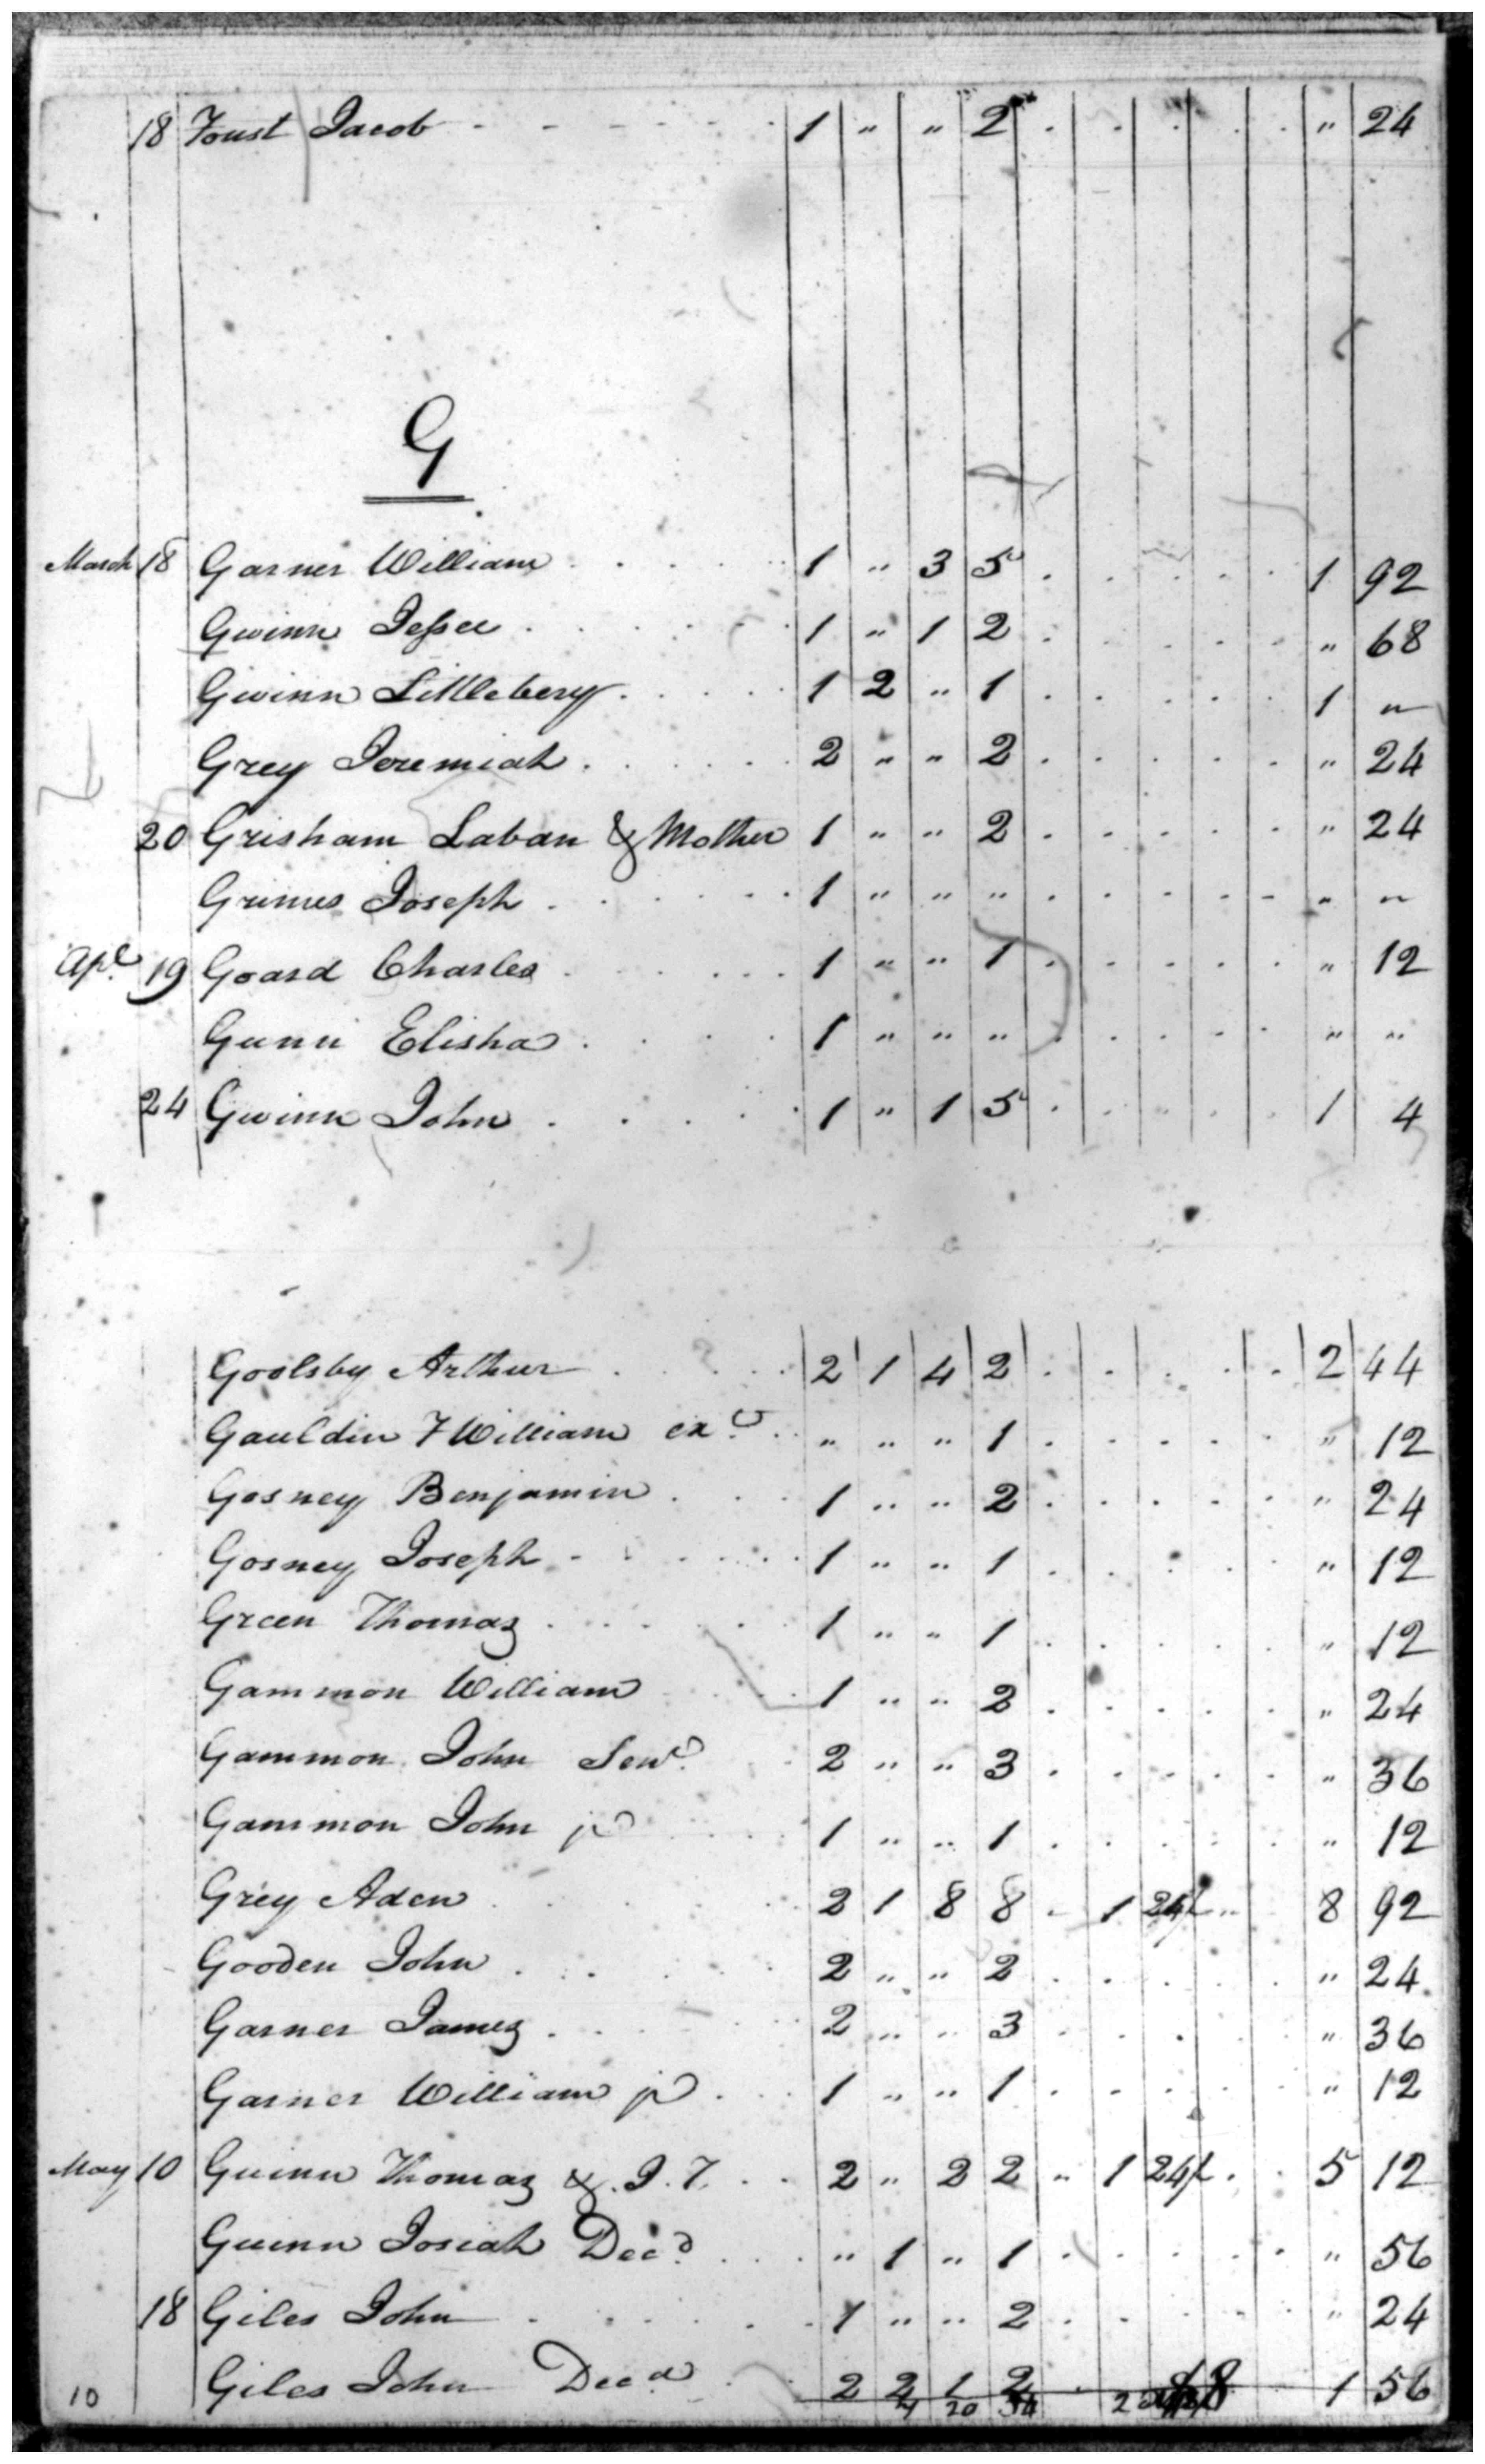 18 Foust Jacob 1 " " 2 " 24
G
March 18 Garner William 1 " 3 5 1 92
Gwinn Jessee 1 " 1 2 " 68
Gwinn Littlebery 1 2 " 1 1 "
Grey Jeremiah 2 " " 2 " 24
20 Grisham Laban & Mother 1 " " 2 " 24
Grimes Joseph 1 " " " " "
Apl 19 Goard Charles 1 " " 1 " 12
Gunn Elisha 1 " " " " "
24 Gwinn John 1 " 1 5 1 4
Goolsby Arthur 2 1 4 2 2 44
Gauldin F William exr " " " 1 " 12
Gosney Benjamin 1 " " 2 " 24
Gosney Joseph 1 " " 1 " 12
Green Thomas 1 " " 1 " 12
Gammon William 1 " " 2 " 24
Gammon John Senr 2 " " 3 " 36
Gammon John jr 1 " " 1 " 12
Grey Aden 2 1 8 8 1 24 8 92
Gooden John 2 " " 2 " 24
Garner James 2 " " 3 " 36
Garner William jr 1 " " 1 " 12
May 10 Guinn Thomas & J. T. 2 " 2 2 " 1 24 5 12
Guinn Josiah Decd " 1 " 1 " 56
18 Giles John 1 " " 2 " 24
Giles John Decd 2 2 1 2 1 56
10 20 54 2